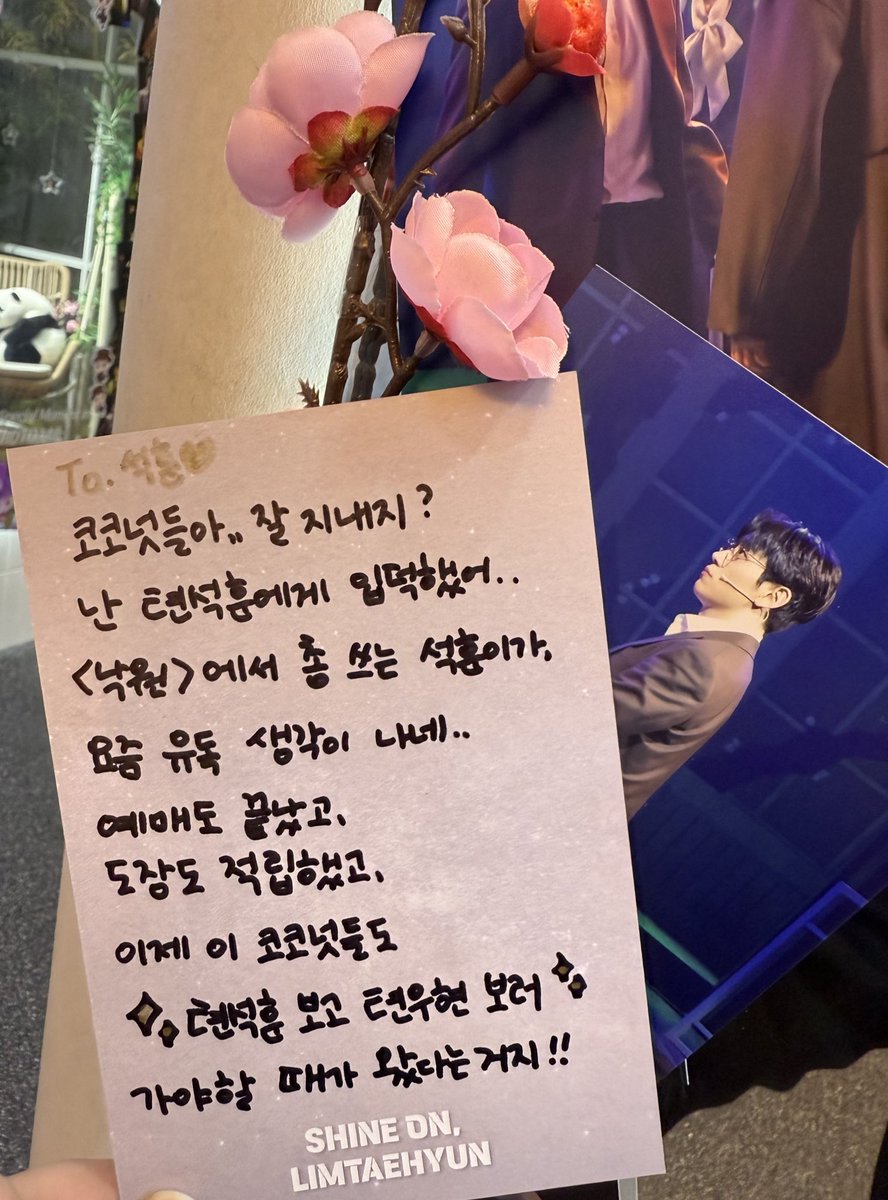 To. 석훈♡
코코넛들아.. 잘 지내지?
난 텬석훈에게 입덕했어..
<낙원>에서 총 쏘는 석훈이가,
요즘 유독 생각이 나네..
예매도 끝났고,
도장도 적립했고,
이제 이 코코넛들도
텬석훈 보고 텬우현 보러
가야할 때가 왔다는거지!!
SHINE ON,
LIMTAEHYUN